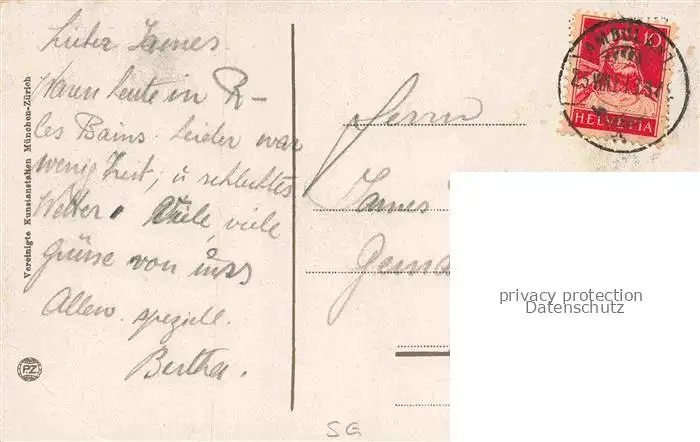 Lieber James
Waren heute in R-
les Bains. Leider war
wenig Zeit, u schlechtes
Wetter. Viele, viele
Grüsse von uns
Allen. speziell.
Bertha.
Vereinigte Kunstanstalten München-Zürich
PZ
10
HELVETIA
AMBULANT
Herrn
James
SG
privacy protection
Datenschutz